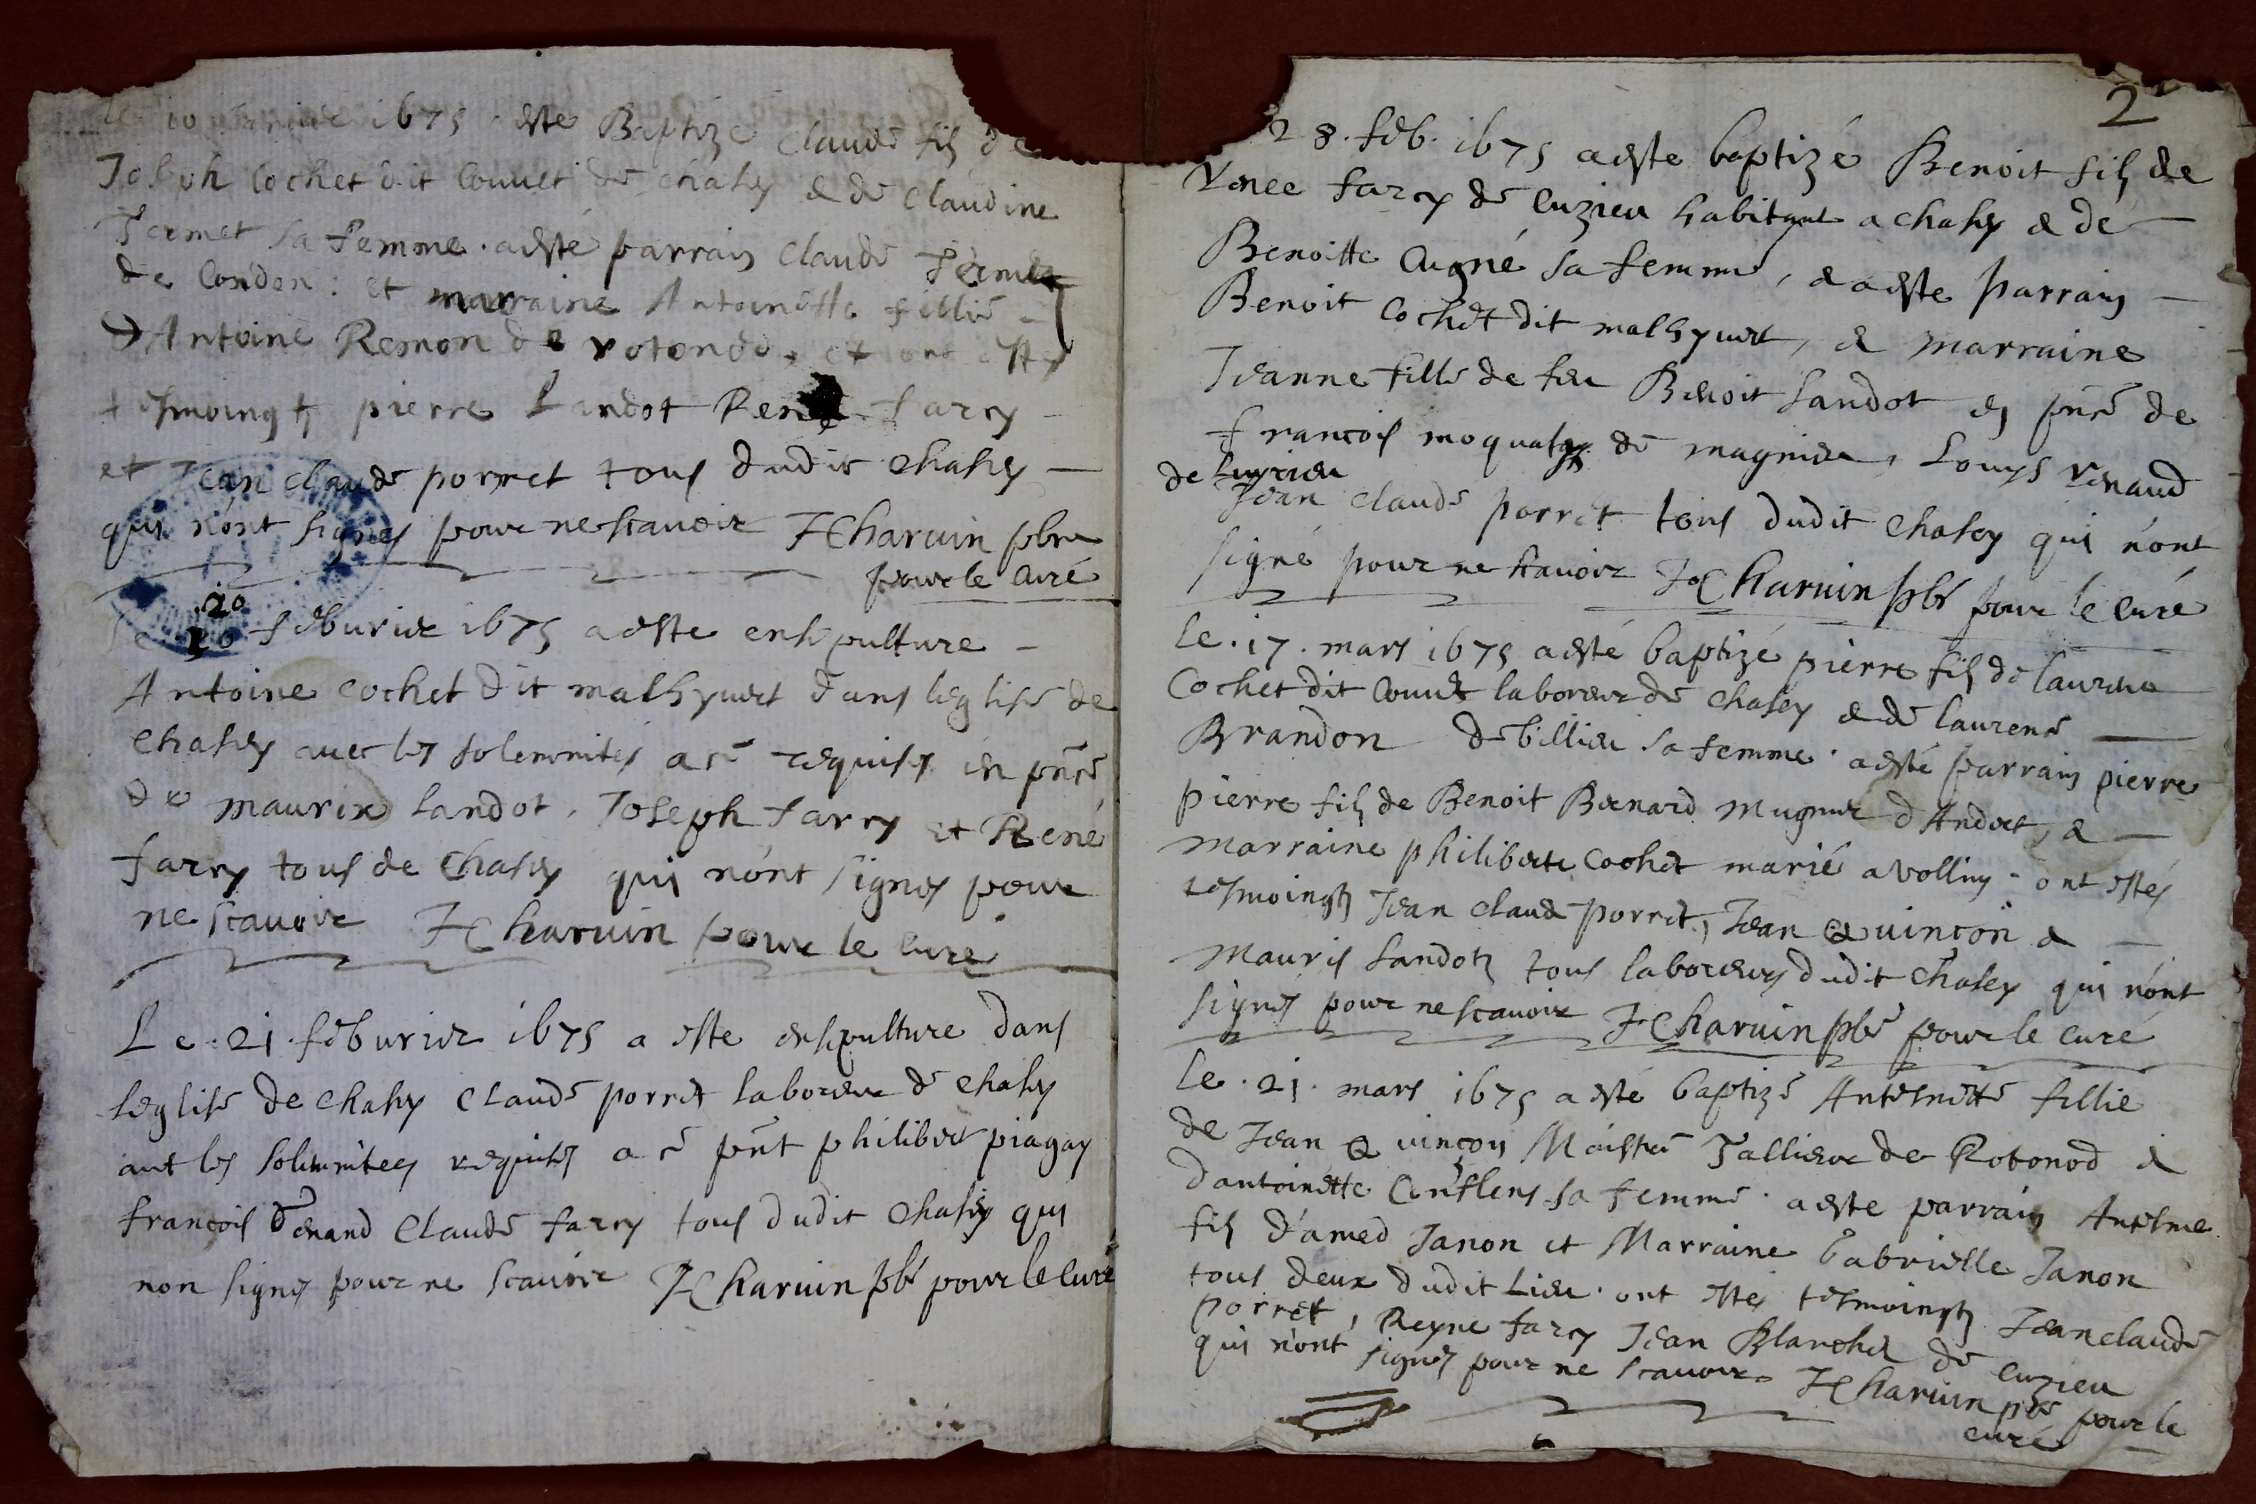 Le 10 1675 aeste Baptizé claude fils de
Joseph cochet dit couuet de chasey & de claudine
Fermet sa femme. aesté parrain claude Fermet
de condon: et marraine Antoinette fillie
D'Antoine Remon de rotonod, et ont estes
tesmoingts pierre Landot René farcy
et Jean claude porret tous dudit chasey
qui n'ont signes pour ne scauoir JCharuin pbre
pour le curé
20
Le feburier 1675 aeste ensepulture
Antoine cochet dit malhyuert dans leglise de
chasey auec les solemnites a ce requises en pnce
de maurix landot, Joseph farcy et René
farcy tous de chasey qui n'ont signes pour
ne scauoir JCharuin pour le curé
Le .21. feburier 1675 a este ensepulture dans
leglise de chasey claude porret laboreur de chasey
auec les solemnitees requises a ce pnt philibert piagay
francois claude farcy tous dudit chasey qui
non signes pour ne scauoir JCharuin pbr pour le curé
2
28. feb. 1675 aeste baptizé Benoit fils de
Renee farcy de cuzieu habitant a chasey & de
Benoitte cugné sa femme, & aeste parrain
Benoit cochet dit malhyuert, & marraine
Jeanne fille de feu Benoit Landot en pnce de
francois de magnieu, Louys renaud
de luyrieu
Jean claude porret tous dudit chasey qui n'ont
signé pour ne scauoir JCharuin pbr pour le curé
Le .17. mars 1675 aesté baptizé pierre fils de laurens
cochet dit couuet laboreur de chasey & de laurence
Brandon de billieu sa femme. aesté parrain pierre
pierre fils de Benoit Bernard mugnier d'Andert, &
marraine philiberte cochet marié a vollin. ont estes
tesmoingts Jean claude porret, Jean Quinçon &
mauris Landotz tous laboreurs dudit chasey qui n'ont
signes pour ne scauoir JCharuin pbr pour le curé
Le .21. mars 1675 aesté baptizé Antelmette fillie
de Jean Quinçon Maistre Tallieur de Rotonod &
dantoinette conflens sa femme. aeste parrain Antelme
fils d'amed Janon et Marraine Gabrielle Janon
tous deux dudit Lieu. ont estes tesmoingts Jean claude
porret, Reyne farcy Jean Blanchet de cuzieu
qui n'ont signes pour ne scauoir. JCharuin pbr pour le
curé